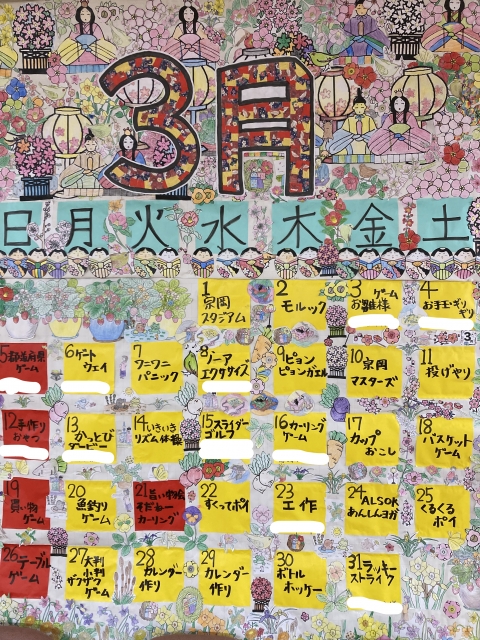 3月
日 月 火 水 木 金 土
1
京岡
スタジアム
2
モルック
3 ゲーム
お雛様
4
お手玉ギリ
ギリ
5 都道府県
ゲーム
6 ゲート
ウェイ
7
ワニワニ
パニック
8
ゾーア
エクササイズ
9 ピョン
ピョンガエル
10 京岡
マスターズ
11
投げやり
12 手作り
おやつ
13
かっとび
14 いきいき
リズム体操
15 スライダー
ゴルフ
16 カーリング
ゲーム
17
カップ
おこし
18
バスケット
ゲーム
19
買い物
ゲーム
20
魚釣り
ゲーム
21
そだねー
カーリング
22
すくってポイ
23
工作
24
ALSOK
あんしんヨガ
25
くるくる
ポイ
26 テーブル
ゲーム
27 大判
小判
ザクザク
ゲーム
28
カレンダー
作り
29
カレンダー
作り
30
ボトル
ホッケー
31 ラッキー
ストライク